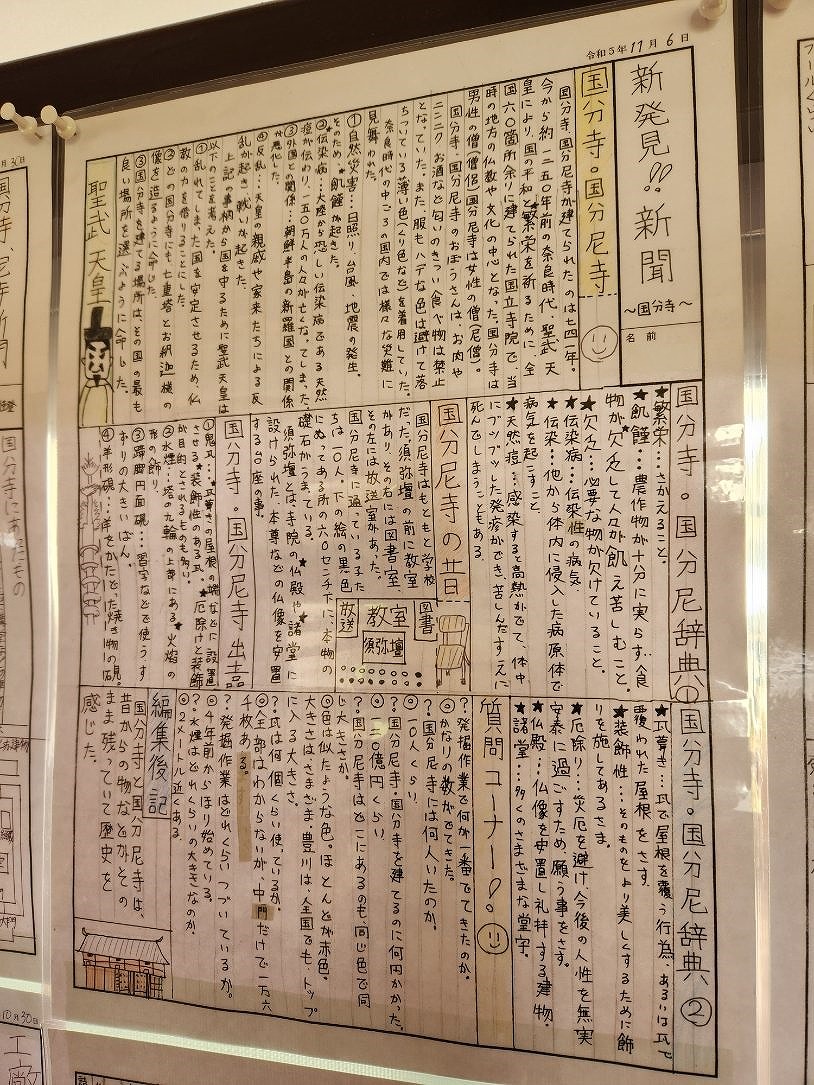 令和5年11月6日
新発見!!新聞
～国分寺～
名前
国分寺・国分尼寺
国分寺、国分尼寺が建てられたのは七四一年。
今から約一二五〇年前の奈良時代、聖武天
皇により、国の平和と繁栄を祈るために、全
国六〇箇所余りに建てられた国立寺院で、当
時の地方の仏教や文化の中心となった。国分寺は
男性の僧(僧侶)国分尼寺は女性の僧(尼僧)。
国分寺、国分尼寺のおぼうさんは、お肉や
ニンニク、お酒など匂いのきつい食べ物は禁止
となっていた。また、服もハデな色は避けて落
ちついている薄い色(くり色など)を着用していた。
奈良時代の中ごろの国内では様々な災難に
見舞われた。
①自然災害…日照り、台風、地震の発生。
そのため、★飢饉が起きた。
②★伝染病…大陸から恐しい伝染病である★天然
痘が伝わり、一五〇万人の人々が亡くなってしまった。
③外国との関係…朝鮮半島の新羅国との関係
が悪化した。
④反乱…天皇の親戚や家来たちによる反
乱が起き、戦いが起きた。
上記の事柄から国を守るために聖武天皇は
以下のことを考えた。
①乱れてしまった国を安定させるため、仏
教の力を借りることにした。
②どの国分寺にも七重塔とお釈迦様の
像を造るように命じた。
③国分寺を建てる場所は、その国の最も
良い場所を選ぶように命じた。
聖武天皇
国分寺・国分尼辞典①
★繁栄…さかえること。
★飢饉…農作物が十分に実らず、食
物が★欠乏して人々が飢え苦しむこと。
★欠乏…必要な物が欠けていること。
★伝染病…伝染性の病気
★伝染…他から体内に侵入した病原体で
病気を起こすこと。
★天然痘…感染すると高熱がでて、体中
にブツブツした発疹ができ、苦しんだすえに
死んでしまうこともある。
国分尼寺の昔
国分尼寺はもともと学校
だった。須弥壇の前に教室
があり、その右には図書室、
その左には放送室があった。
国分尼寺に通っている子た
ちは一〇人。下の絵の黒色
にぬってある所の六〇センチ下に、本物の
礎石がうまっている。
須弥壇とは寺院の★仏殿や★諸堂に
設けられた、本尊などの仏像を安置
する台座の事。
図書
教室
放送
須弥壇
国分寺・国分尼寺出土品
①鬼瓦…★瓦葺きの屋根の端などに設置
させる★装飾性のある瓦。★厄除けと装飾
が目的とされるものも多い。
②水煙…塔の九輪の上部にある★火焔の
形の飾り。
③蹄脚円面硯…習字などで使う、す
ずりの大きいばん。
④羊形硯…羊をかたどった焼き物の硯。
国分寺・国分尼辞典②
★瓦葺き…瓦で屋根を覆う行為、あるいは瓦で
覆われた屋根をさす。
★装飾性…そのものをより美しくするために飾
りを施してあるさま。
★厄除り…災厄を避け、今後の人性を無実
安泰に過ごすため、願う事をさす。
★仏殿…仏像を安置し礼拝する建物。
★諸堂…多くのさまざまな堂宇。
質問コーナー!
?発掘作業で何が一番でてきたのか。
◎かなりの数がでてきた。
?国分尼寺には何人いたのか。
◎一〇人くらい。
?国分尼寺・国分寺を建てるのに何円かかった。
◎一二〇億円くらい
?国分尼寺はどこにあるのも、同じ色で同
じ大きさか。
◎色は似たような色。ほとんどが赤色。
大きさはさまざま。豊川は、全国でも、トップ
に入る大きさ。
?瓦は何個くらい使っているか。
◎全部はわからないが、中門だけで一万六
千枚ある。
?発掘作業はどれくらいつづいているか。
◎4年前からほり始めている。
?水煙はどれくらいの大きさなのか。
◎2メートル近くある。
編集後記
国分寺と国分尼寺は、
昔からの物などがその
まま残っていて歴史を
感じた。
国分寺にあたもの
10月30日
工廠